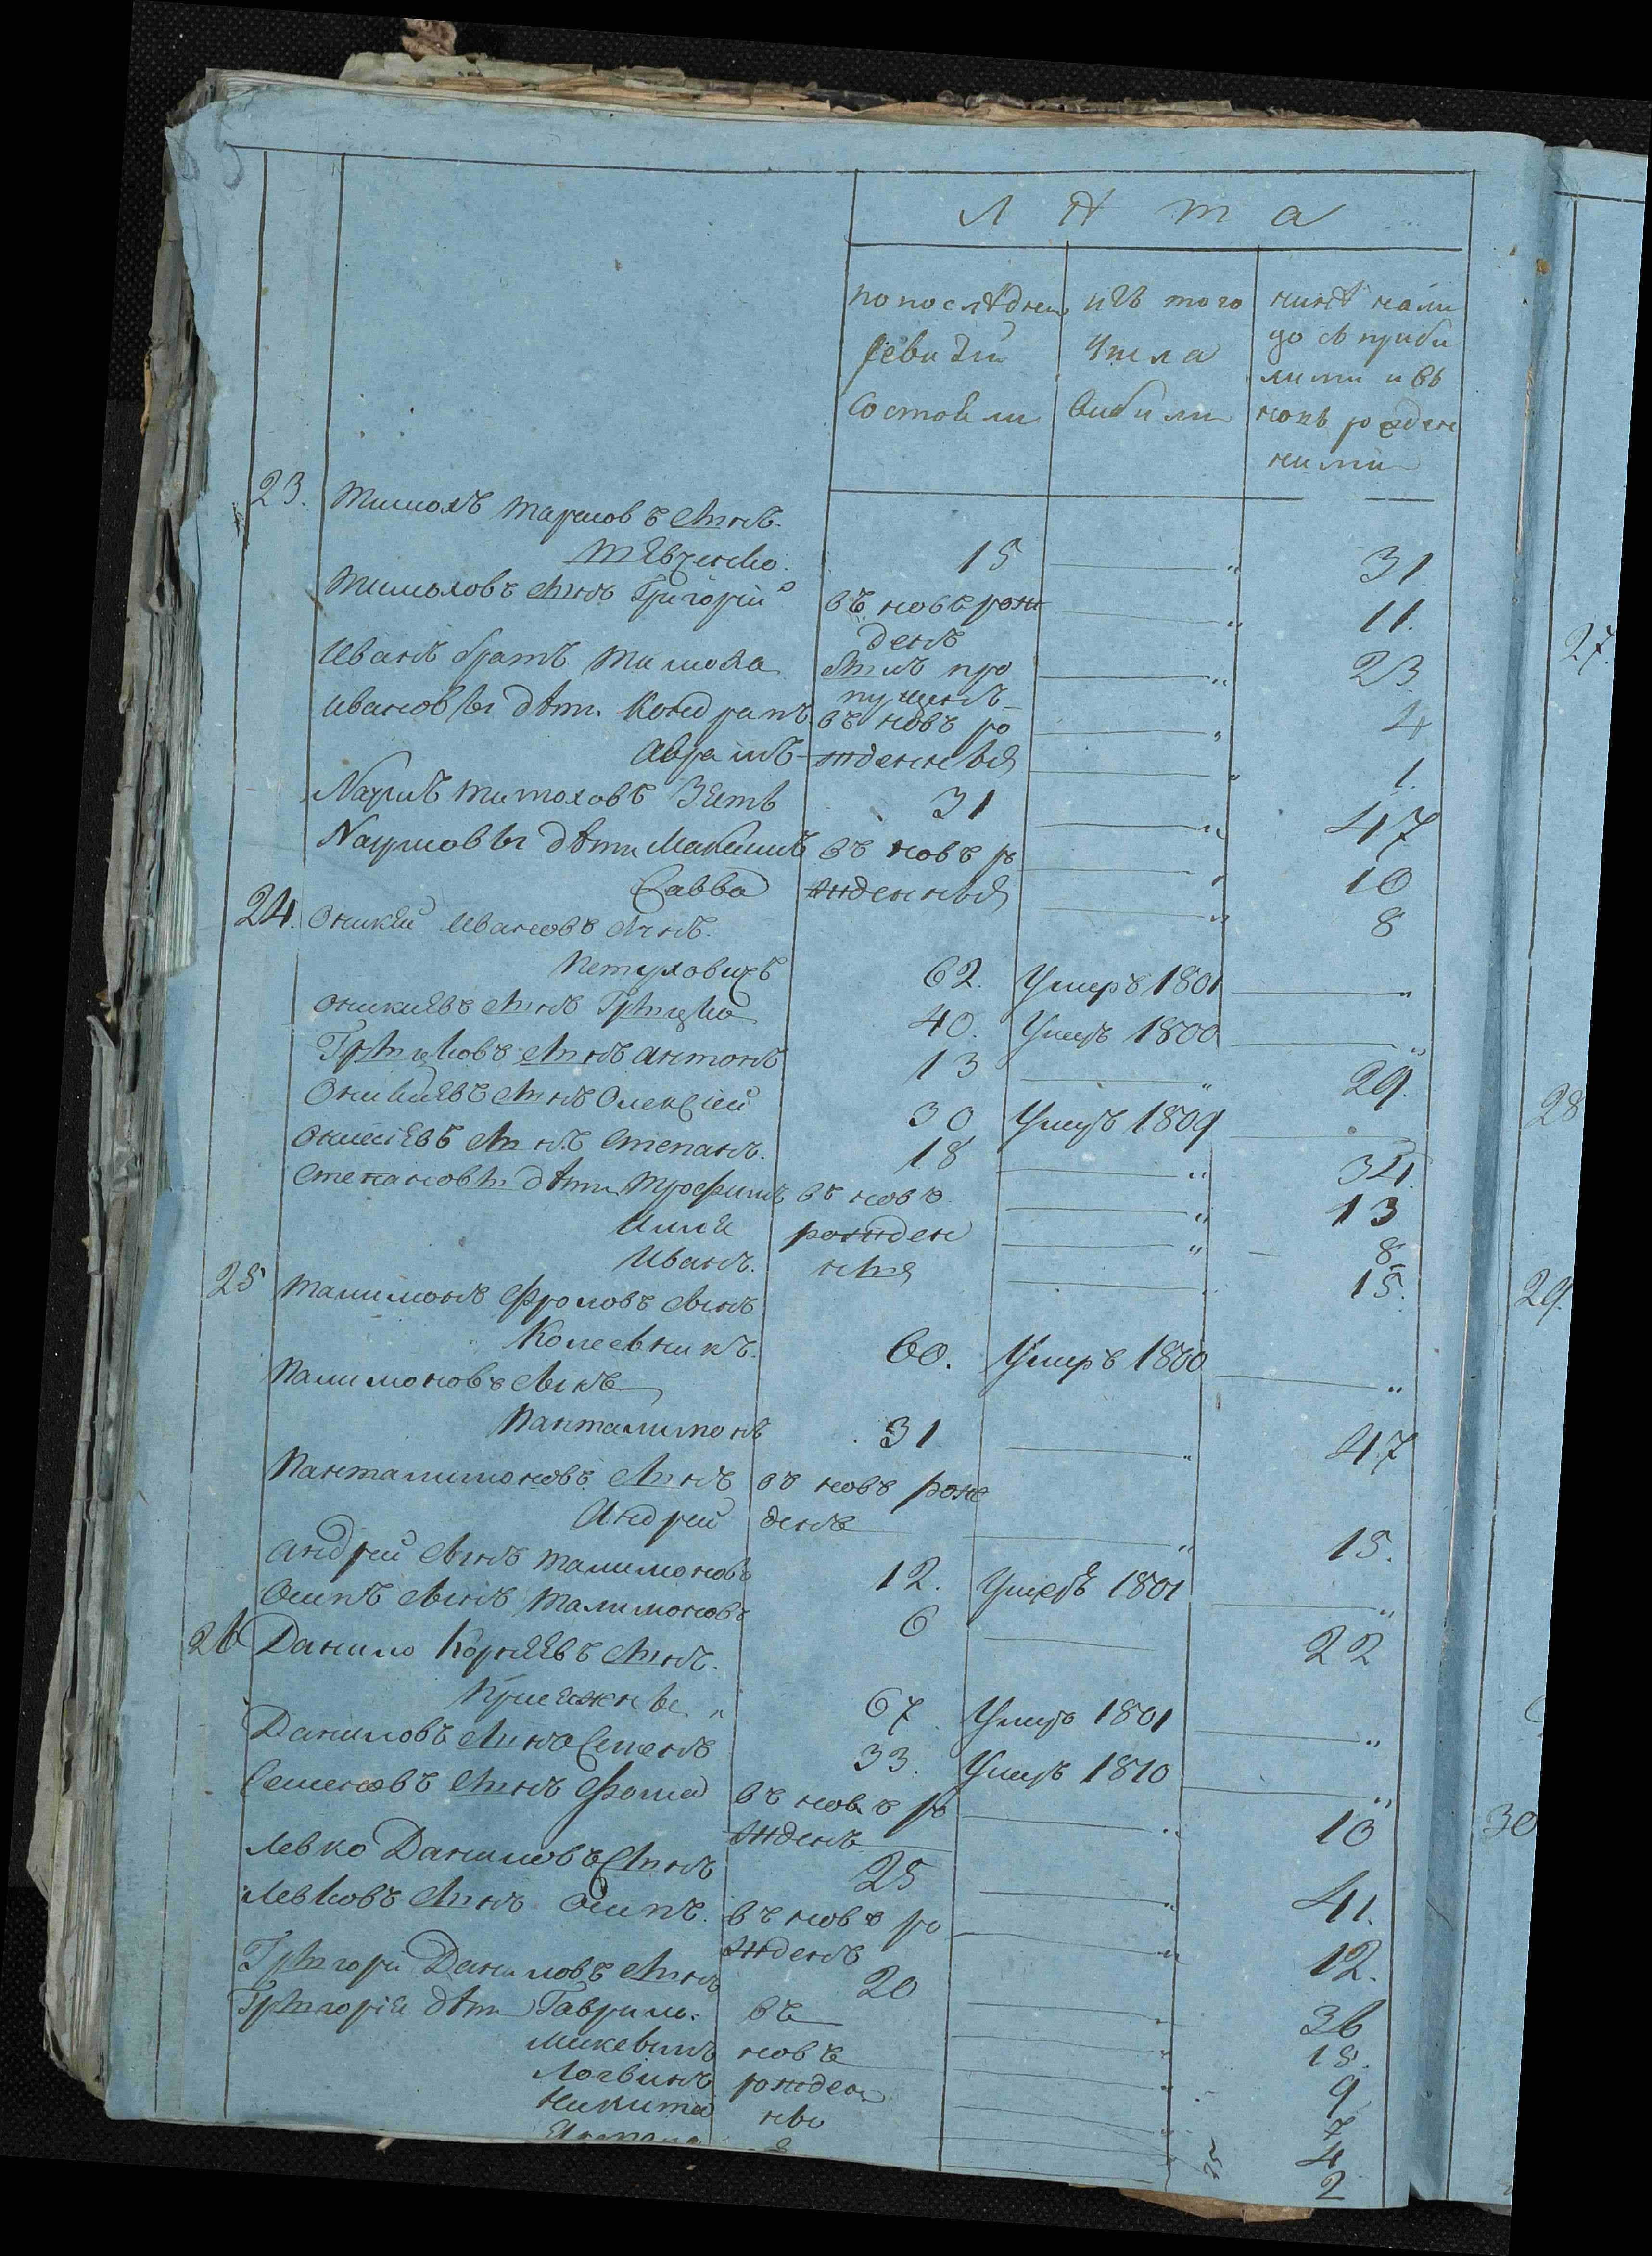 Л Ѣ т а
по последней изъ того нинѣ нали
ревизіи числа до съ приби
состояли вибили лими и въ
новь рожден
ними
23. Тимохъ Таримовъ синъ
Шевченко. 15 " 31
Тимоховъ синъ Григорій въ новѣ рож " 11.
денъ
Иванъ братъ Тимоха билъ про " 23
пущенъ
Ивановы дѣти Кондратъ въ новъ ро " 4
Аврамъ жденныя " 1.
Наумъ Тимоховъ Зять 31 " 47
Наумовы дѣти Максимъ въ новъ ро " 10
Савва жденныя " 8
24. Оникей Ивановъ синъ
Петуховъ 62. Умеръ 1801 "
Оникіевъ синъ Грыцко 40. Умеръ 1800 "
Грыцковъ сынъ Антонъ 13 " 29.
Оникіевъ синъ Олексій 30 Умеръ 1809
Оникіевъ сынъ Степанъ. 18 " 34.
Степановы дѣти Трофимъ въ новъ " 13
Илля рожден " 8
Иванъ. ныя 15.
25 Талимонъ Фроловъ синъ
Колесникъ. 60. Умеръ 1800 "
Палимоновъ синъ
Панталимонъ 31 " 47
Панталимоновъ сынъ въ новъ рож
Андрей денъ " 15.
Андрей синъ Талимоновъ 12. Умеръ 1801 "
Осипъ синъ Талимоновъ 6 22
26 Данило Корнѣевъ сынъ.
67 Умеръ 1801 "
Даниловъ сынъ Семенъ 33. Умеръ 1810 "
Семеновъ сынъ Фома въ новъ ро " 10
жденъ
Левко Даниловъ Сынъ 25 " 41.
Левковъ сынъ Осипъ. въ новъ ро " 12.
жденъ
Грыгори Даниловъ сынъ 20 36
Грыгорія дѣти Гаврило. въ " 18.
новъ " 9
Логвинъ рожден " 7
Никита ные " 4
2
27.
28
29.
30